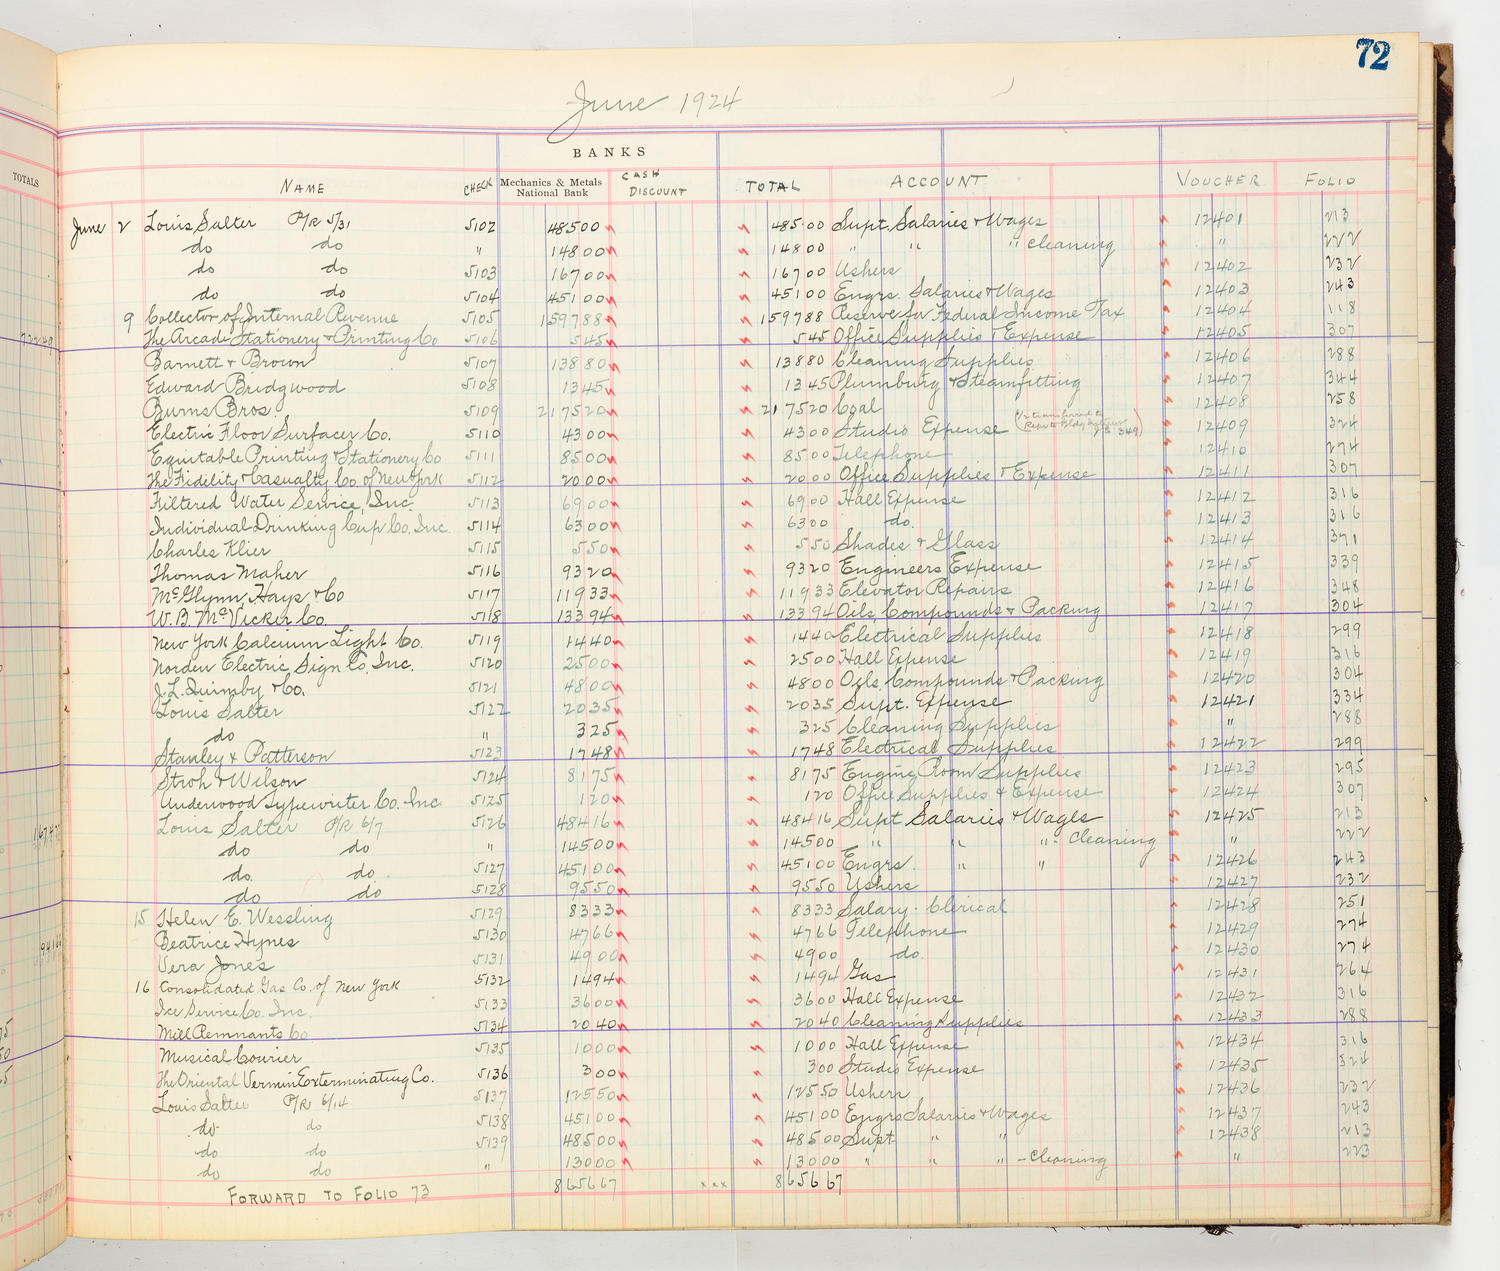 72
June 1924
TOTALS
BANKS
NAME CHECK Mechanics & Metals National Bank CASH DISCOUNT TOTAL ACCOUNT VOUCHER FOLIO
June 2 Louis Salter P/R 5/31 5102 485 00 485 00 Supt. Salaries & Wages 12401 213
do do " 148 00 148 00 " " " cleaning " 222
do do 5103 167 00 167 00 Ushers 12402 232
do do 5104 451 00 451 00 Engrs. Salaries & Wages 12403 243
9 Collector of Internal Revenue 5105 1597 88 1597 88 Reserve for Federal Income Tax 12404 118
The Arcade Stationery & Printing Co 5106 5 45 5 45 Office Supplies & Expense 12405 307
Barnett & Brown 5107 138 80 138 80 Cleaning Supplies 12406 288
Edward Bridgwood 5108 13 45 13 45 Plumbing & Steamfitting 12407 344
Burns Bros. 5109 2175 20 2175 20 Coal 12408 258
Electric Floor Surfacer Co. 5110 43 00 43 00 Studio Expense (1/2 transferred to 349) 12409 324
Equitable Printing & Stationery Co 5111 85 00 85 00 Telephone 12410 274
The Fidelity & Casualty Co. of New York 5112 20 00 20 00 Office Supplies & Expense 12411 307
Filtered Water Service, Inc. 5113 69 00 69 00 Hall Expense 12412 316
Individual Drinking Cup Co. Inc. 5114 63 00 63 00 do. 12413 316
Charles Klier 5115 5 50 5 50 Shades & Glass 12414 371
Thomas Maher 5116 93 20 93 20 Engineers Expense 12415 339
McGlynn, Hays & Co 5117 119 33 119 33 Elevator Repairs 12416 348
W. B. McVicker Co. 5118 133 94 133 94 Oils, Compounds & Packing 12417 304
New York Calcium Light Co. 5119 14 40 14 40 Electrical Supplies 12418 299
Norden Electric Sign Co. Inc. 5120 25 00 25 00 Hall Expense 12419 316
J. L. Quimby & Co. 5121 48 00 48 00 Oils, Compounds & Packing 12420 304
Louis Salter 5122 20 35 20 35 Supt. Expense 12421 334
do " 3 25 3 25 Cleaning Supplies " 288
Stanley & Patterson 5123 17 48 17 48 Electrical Supplies 12422 299
Stroh & Wilson 5124 81 75 81 75 Engine Room Supplies 12423 295
Underwood Typewriter Co. Inc 5125 1 20 1 20 Office Supplies & Expense 12424 307
Louis Salter P/R 6/7 5126 484 16 484 16 Supt Salaries & Wages 12425 213
do do " 145 00 145 00 " " " - cleaning " 222
do. do 5127 451 00 451 00 Engrs. " " 12426 243
do do 5128 95 50 95 50 Ushers 12427 232
15 Helen E. Wessling 5129 83 33 83 33 Salary - Clerical 12428 251
Beatrice Hynes 5130 47 66 47 66 Telephone 12429 274
Vera Jones 5131 49 00 49 00 do. 12430 274
16 Consolidated Gas Co. of New York 5132 14 94 14 94 Gas 12431 264
Ice Service Co. Inc. 5133 36 00 36 00 Hall Expense 12432 316
Mill Remnants Co 5134 20 40 20 40 Cleaning Supplies 12433 288
Musical Courier 5135 10 00 10 00 Hall Expense 12434 316
The Oriental Vermin Exterminating Co. 5136 3 00 3 00 Studio Expense 12435 324
Louis Salter P/R 6/14 5137 125 50 125 50 Ushers 12436 232
do. do 5138 451 00 451 00 Engrs Salaries & Wages 12437 243
do do 5139 485 00 485 00 Supt " " 12438 213
do do " 130 00 130 00 " " " - cleaning " 223
FORWARD TO FOLIO 73 8656 67 xxx 8656 67